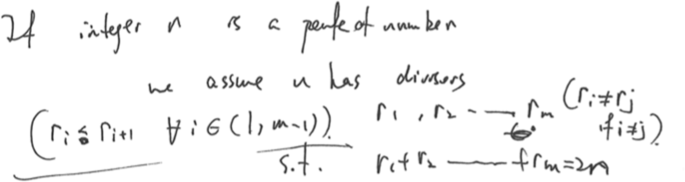 If integer n is a perfect number
we assume n has divisors
(r_i ≤ r_{i+1} ∀ i ∈ (1, m-1)) r_1, r_2 --- r_m (r_i ≠ r_j if i ≠ j)
s.t. r_1 + r_2 --- + r_m = 2n